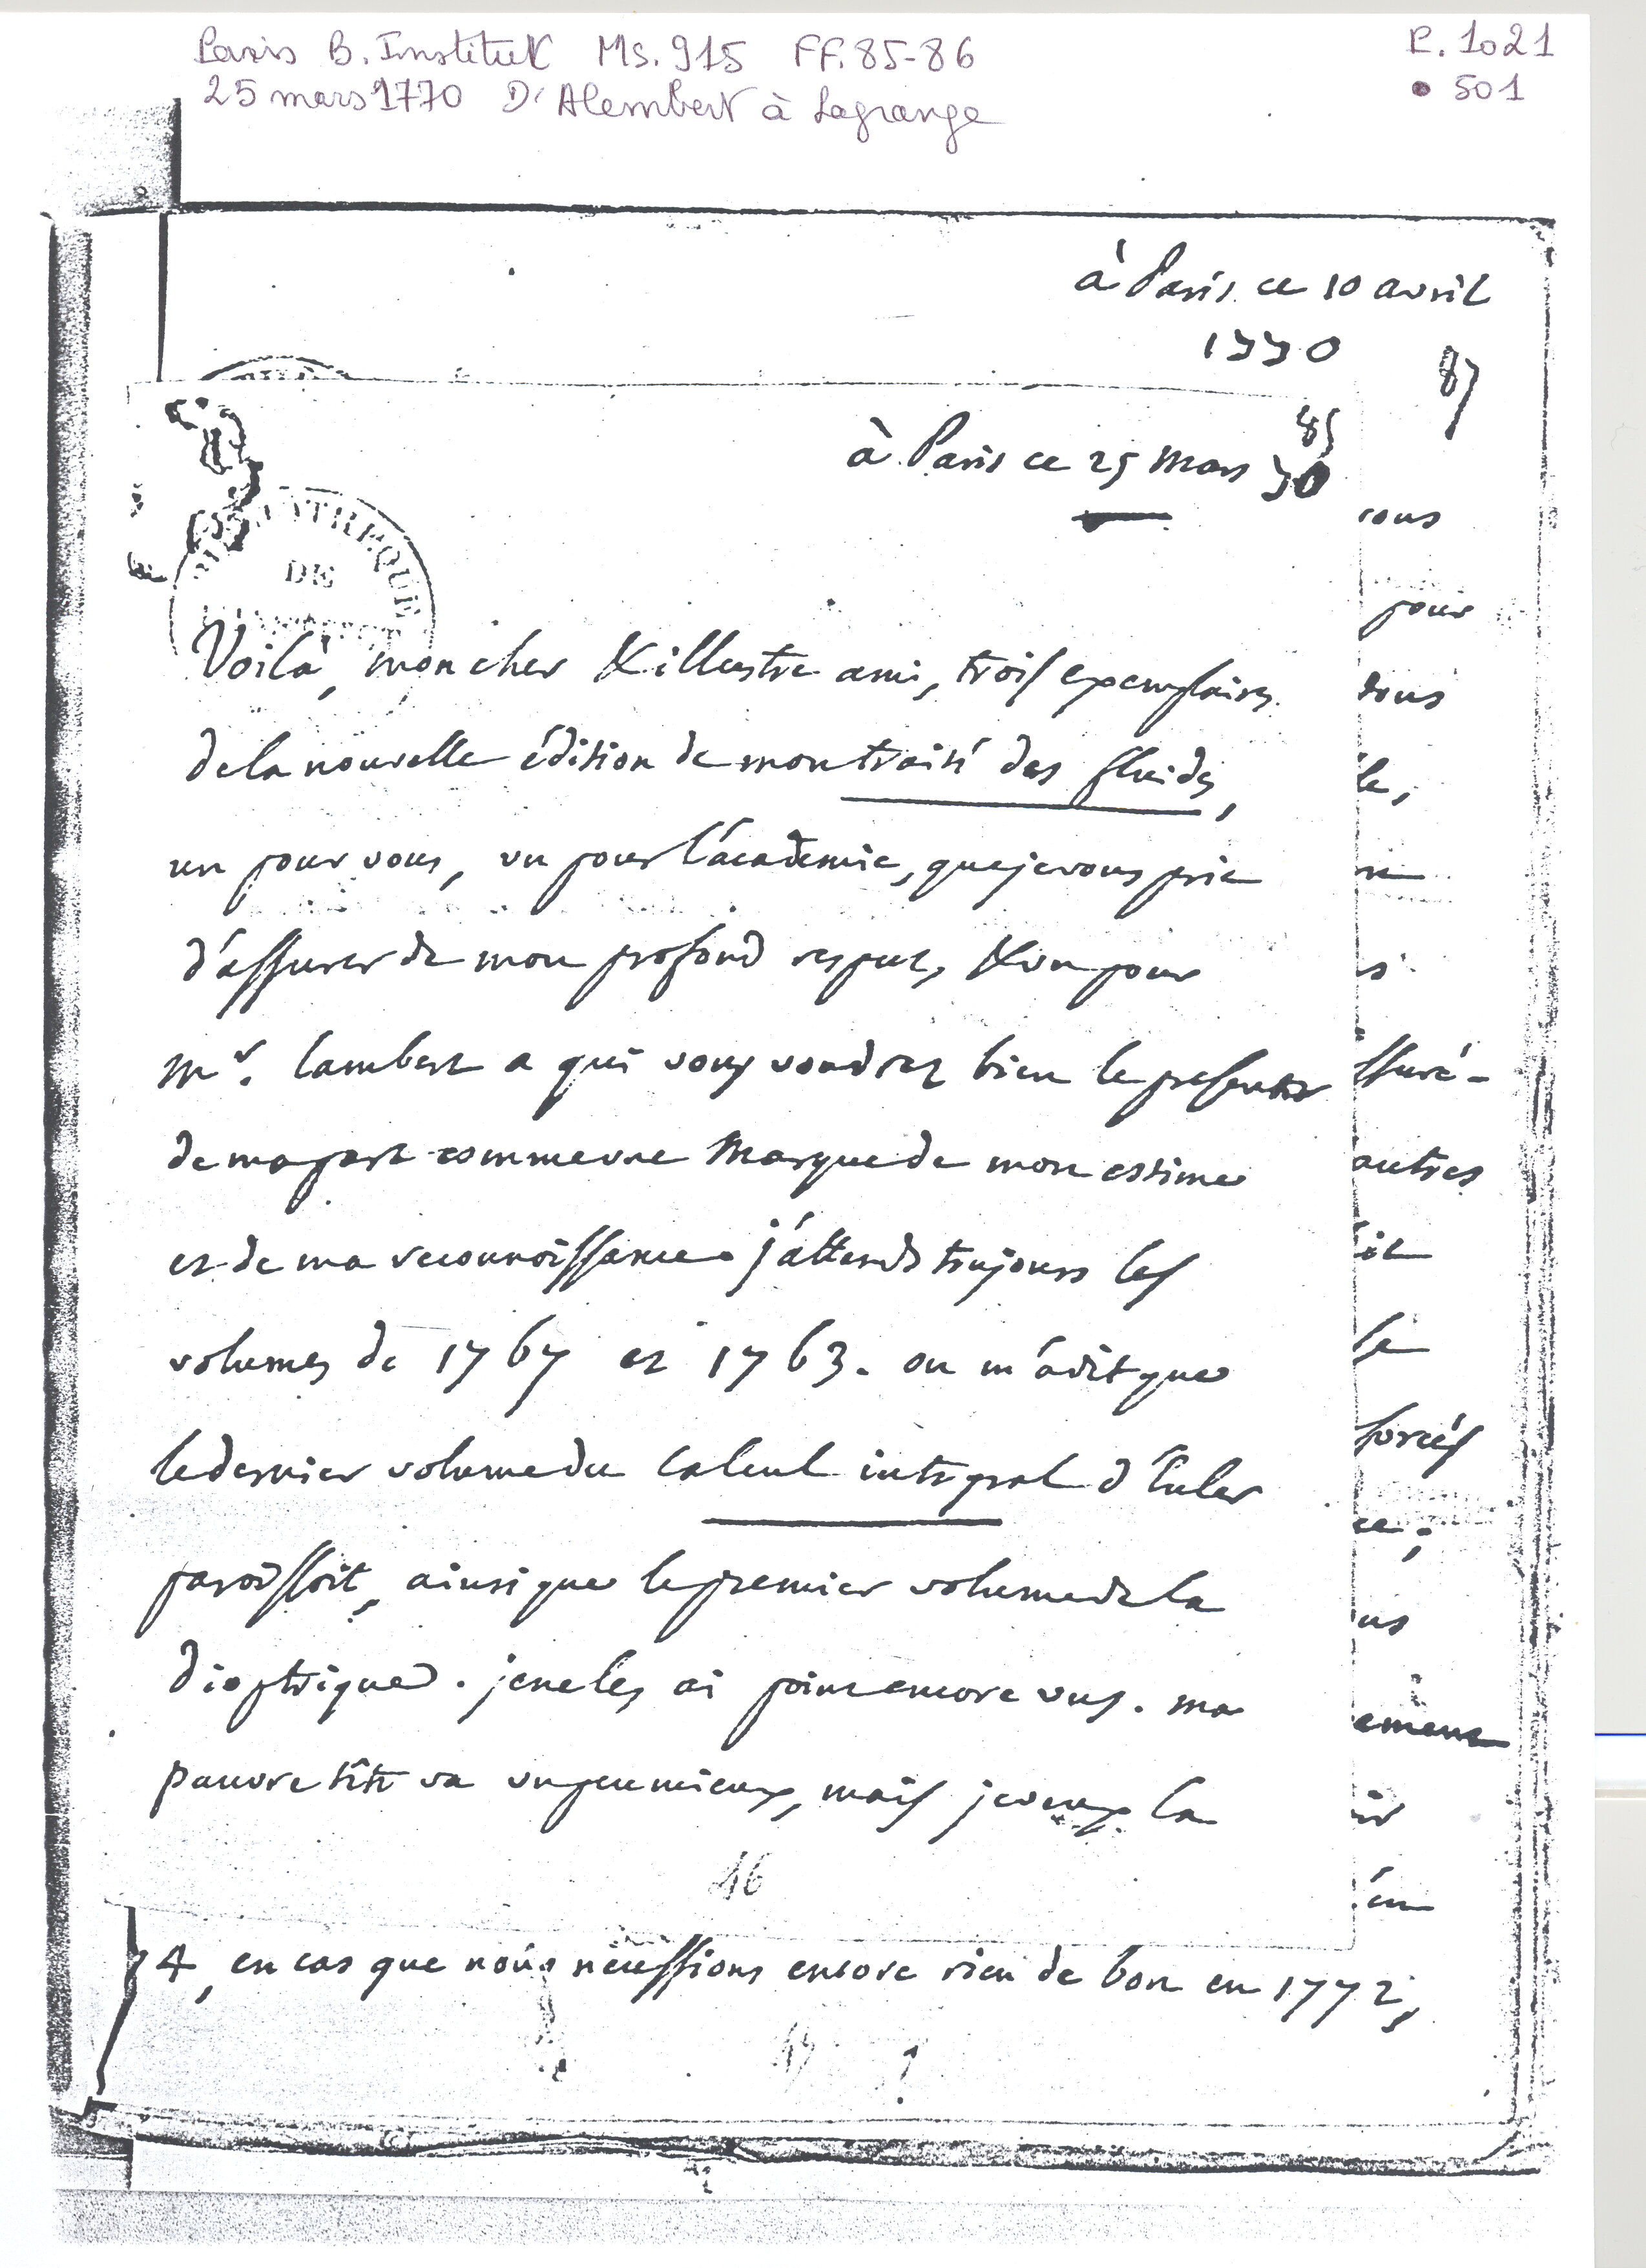 Paris B. Institut Ms. 915 FF. 85-86
P. 1021
25 mars 1770 D'Alembert à Lagrange
• 501
à Paris ce 10 avril
1770
87
85
à Paris ce 25 mars 70
BIBLIOTHEQUE
DE
Voilà, mon cher & illustre ami, trois exemplaires
de la nouvelle édition de mon traité des fluides,
un pour vous, un pour l'académie, que je vous prie
d'assurer de mon profond respect, & un pour
mr. lambert a qui vous voudrez bien le presenter
de ma part comme une marque de mon estime
et de ma reconnoissance. j'attends toujours les
volumes de 1767 et 1763. on m'a dit que
le dernier volume du calcul integral d'Euler
paroissoit, ainsi que le premier volume de la
dioptrique. je ne les ai point encore vus. ma
pauvre tête va un peu mieux, mais je veux la
46
vous
pour
vous
le,
ne
s
ssuré-
autres
oit
le
forcés
ce;
us
ement
ir
en
74, en cas que nous n'eussions encore rien de bon en 1772,